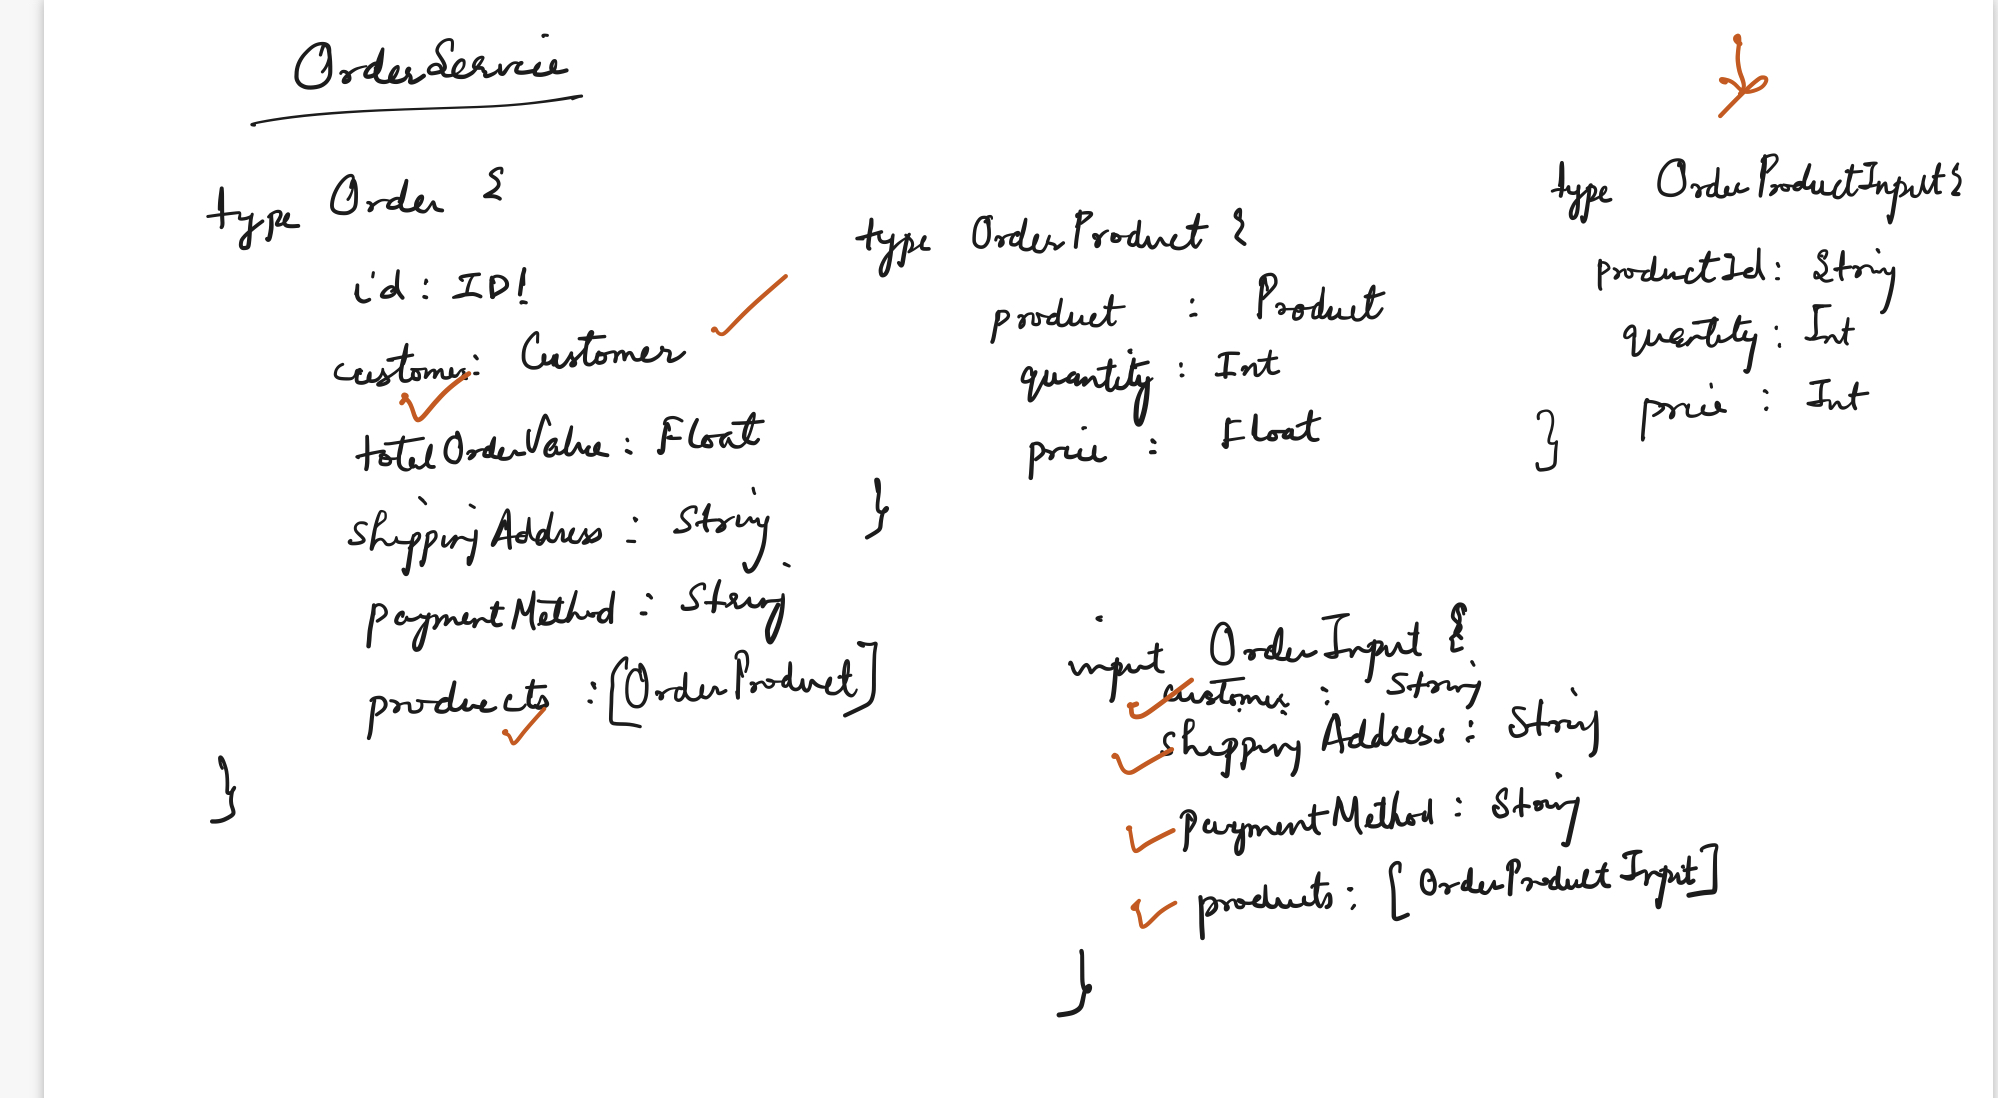 OrderService
type Order {
id : ID!
customer : Customer
totalOrderValue : Float
shippingAddress : String
paymentMethod : String
products : [OrderProduct]
}
type OrderProduct {
product : Product
quantity : Int
price : Float
}
type OrderProductInput {
productId : String
quantity : Int
price : Int
}
input OrderInput {
customer : String
shipping Address : String
paymentMethod : String
products : [OrderProductInput]
}